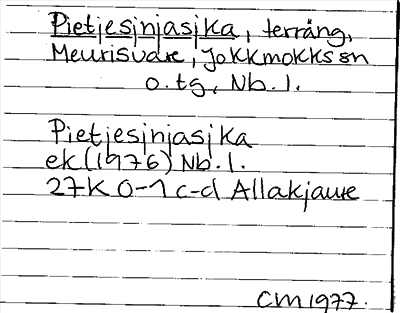 Pietjesjnjasjka, terräng,
Meurisvare, Jokkmokks sn
o. tg, Nb. l.
Pietjesjnjasjka
ek (1976) Nb. l.
27K 0-1 c-d Allakjaure
CM 1977.